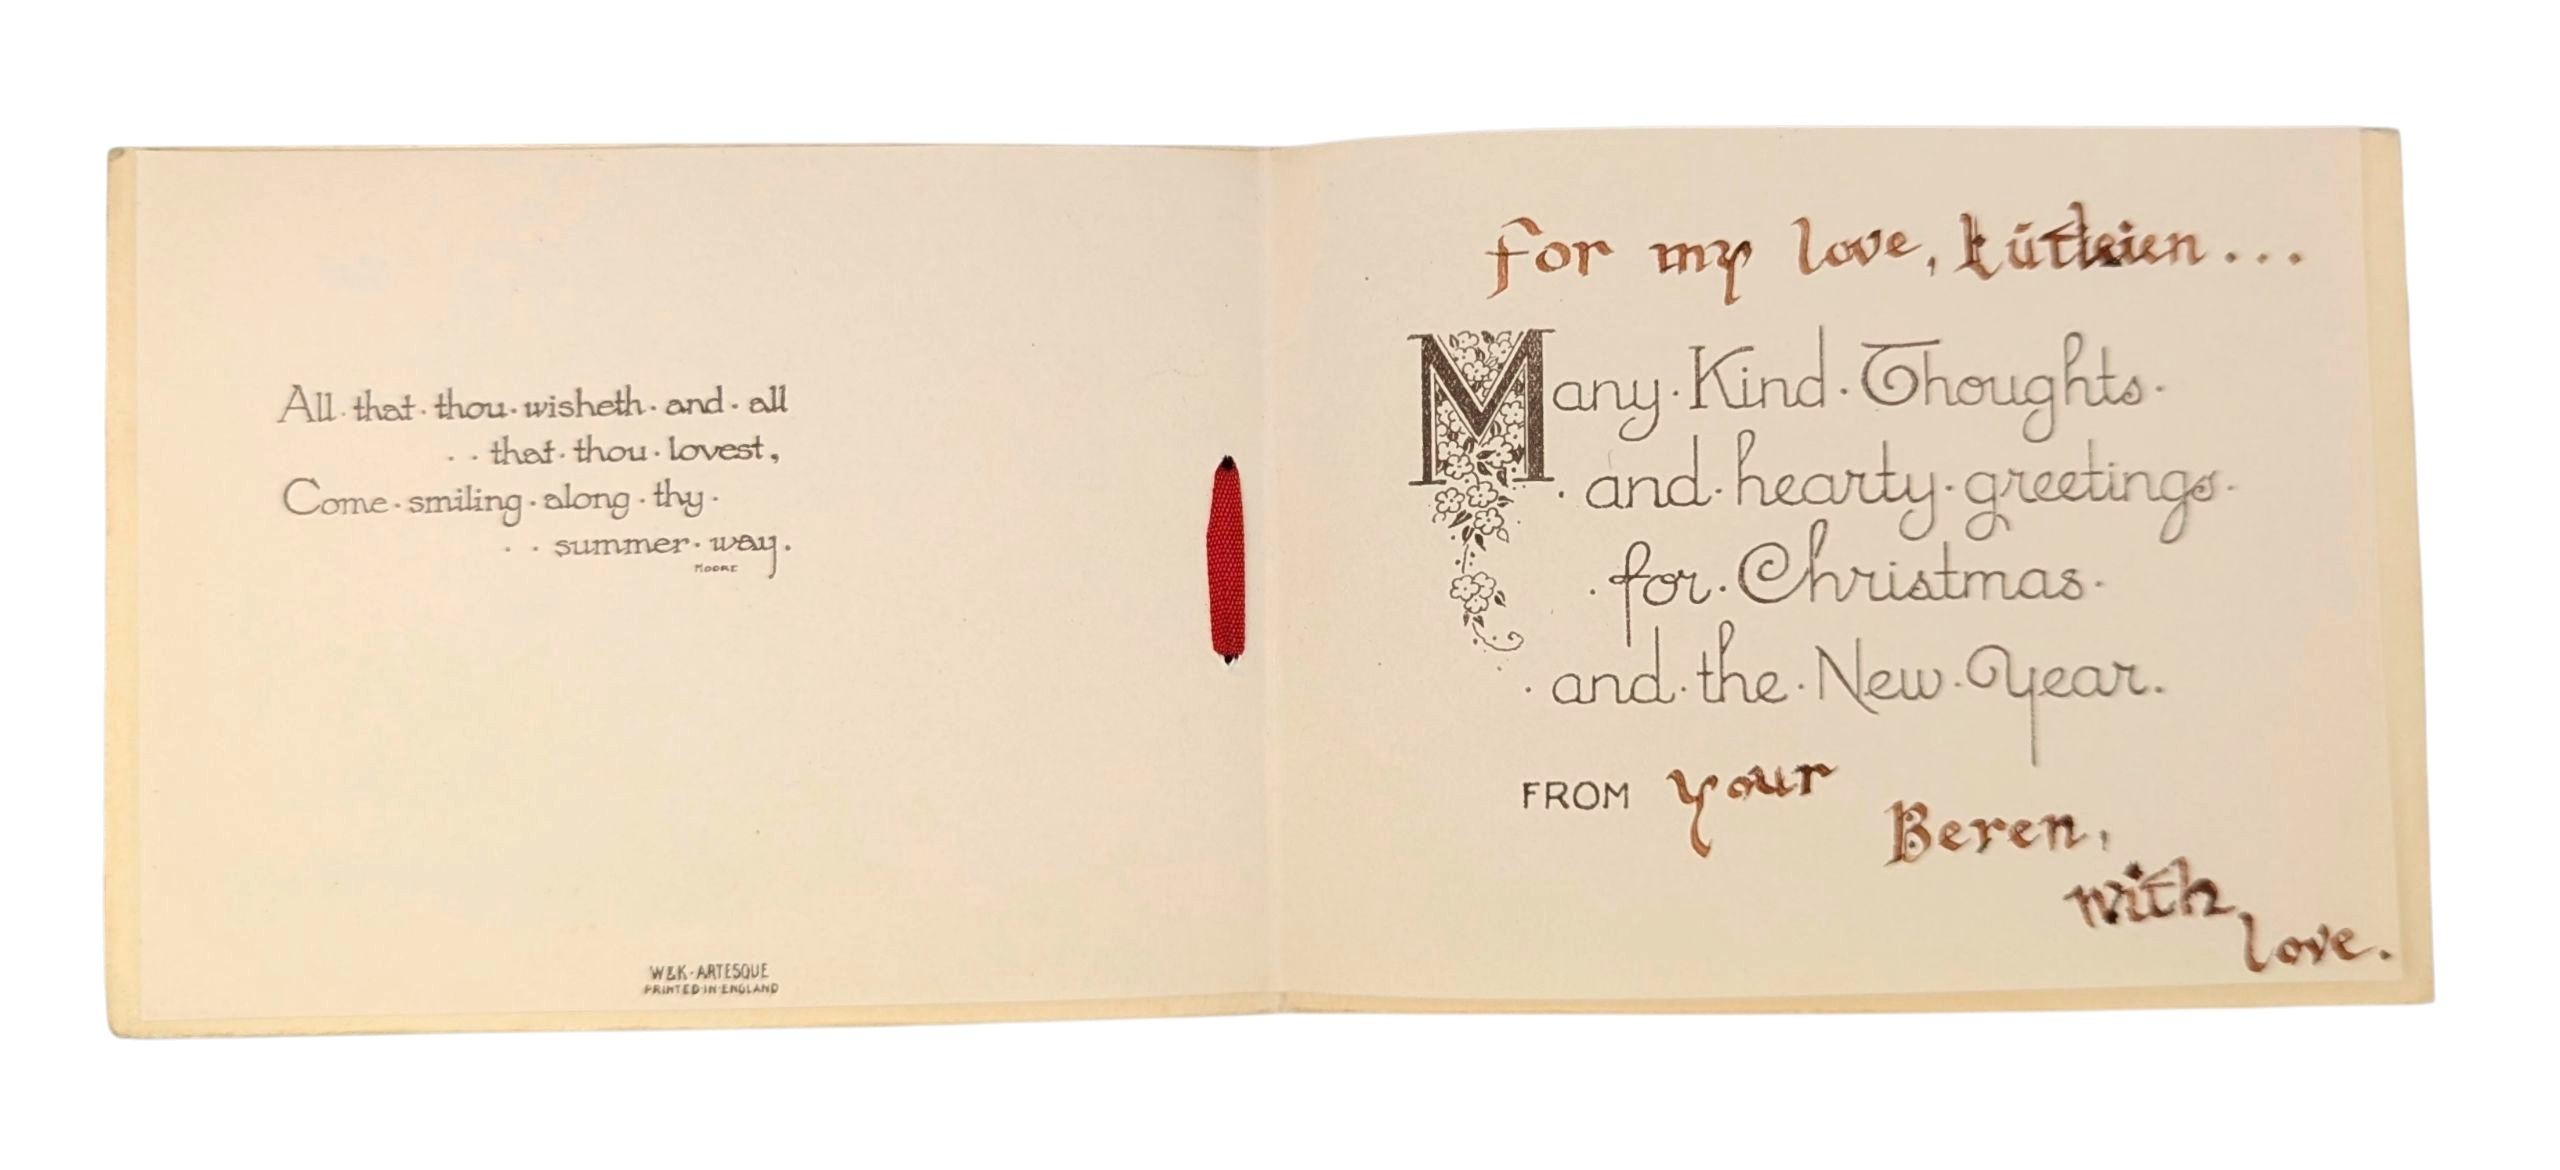 All · that · thou · wisheth · and · all
· · that · thou · lovest,
Come · smiling · along · thy ·
· · summer · way.
MOORE
W&K · ARTESQUE
PRINTED · IN · ENGLAND
For my love, Lúthien...
Many · Kind · Thoughts ·
· and · hearty · greetings ·
· for · Christmas ·
· and · the · New · Year.
FROM your
Beren,
with
love.